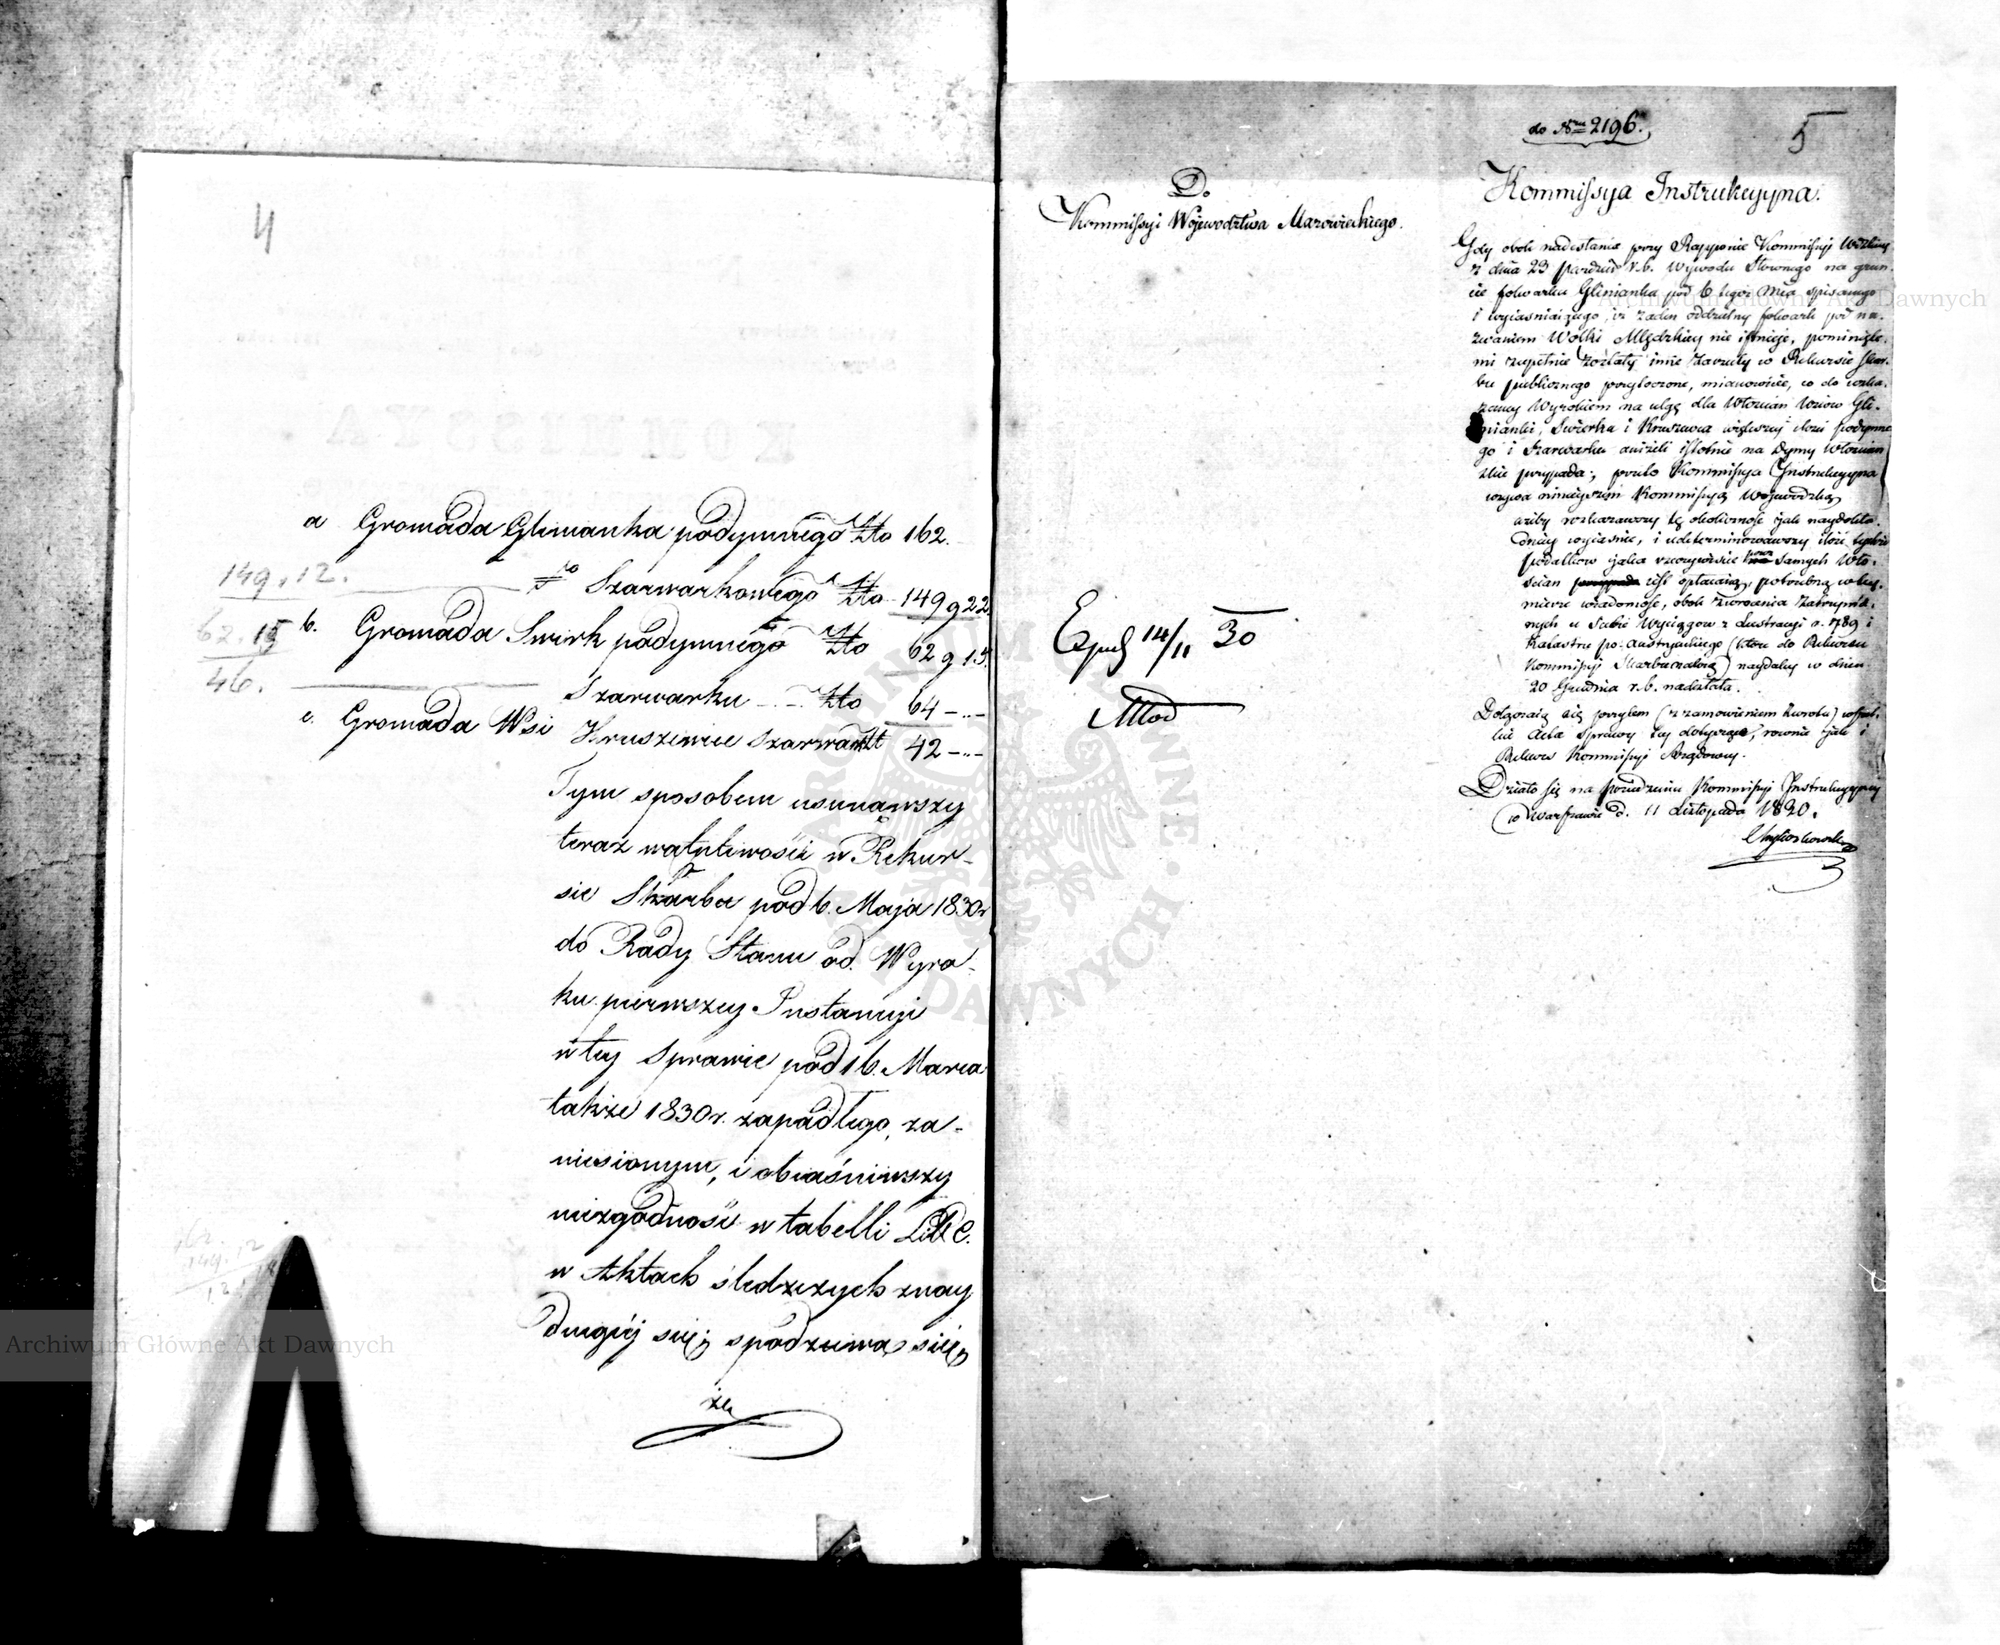 4
a Gromada Glinianka podymnego Złto 162.
149.12.
to Szarwarkowego Złto 149 g 22
62.15
b. Gromada Swirk podymnego Złto 62 g 15.
46.
Szarwarku Złto 64 -..-
c. Gromada Wsi Kruszewiec Szarwark Zł 42 -..-
Tym sposobem usunąwszy
teraz wątpliwości w Rekur-
sie Skarbu pod 6. Maja 1830 r
do Rady Stanu od Wyro-
ku pierwszey Instancyi
w tey Sprawie pod 16. Marca
także 1830 r. zapadłego, za-
niesionym, i obiaśniwszy
niezgodność w tabelli Litt C.
w Aktach śledczych znay
duiącéy się; spodziewa się
że
do Nru 2196.
5
Do
Kommissyi Wojewodztwa Mazowieckiego.
Kommissya Instrukcyyna.
Gdy obok nadesłania przy Rapporcie Kommissyi Wdzkiey
z dnia 23 Pazdzier r.b. Wywodu Słownego na grun-
cie folwarku Glinianka pod 6 tegoż Mca spisanego
i wyiasniaiącego, iż żaden oddzielny folwark pod na-
zwaniem Wolki Mlądzkiey nie istnieje, pominięte-
mi zupełnie zostały inne zarzuty w Rekursie Skar-
bu publicznego przytoczone, mianowicie, co do wska-
zaney Wyrokiem na ulgę dla Włościan Wsiow Gli-
nianki, Swierka i Kruszewca większey ilości podymne
go i Szarwarku aniżeli istotnie na Dymy Włościan
skie przypada; przeto Kommissya Instrukcyyna
wzywa ninieyszem Kommissyą Wojewodzką
ażeby rozkazawszy tę okoliczność jak naydokła-
dniey wyiasnić, i zdeterminowawszy ilość tychże
podatkow jaka rzeczywiście przez samych Wło-
ścian iest opłacaną, potrzebną w tey
mierze wiadomość, obok zwrocenia zatrzyma-
nych u Siebie Wyciągow z Lustracyi r. 1789 i
Katastru po-Austryackiego (które do Rekursu
Kommissyi Skarbu należą) naydaley w dniu
20 Grudnia r.b. nadesłała.
Dołączaią się przytem (z zamowieniem zwrotu) wszel-
kie Akta Sprawy tey dotyczące, rownie jak i
Rekurs Kommissyi Rządowey.
Działo się na posiedzeniu Kommissyi Instrukcyyney
w Warszawie d. 11 Listopada 1830.
Exped 14/11 30
Młod
Archiwum Główne Akt Dawnych
Archiwum Główne Akt Dawnych